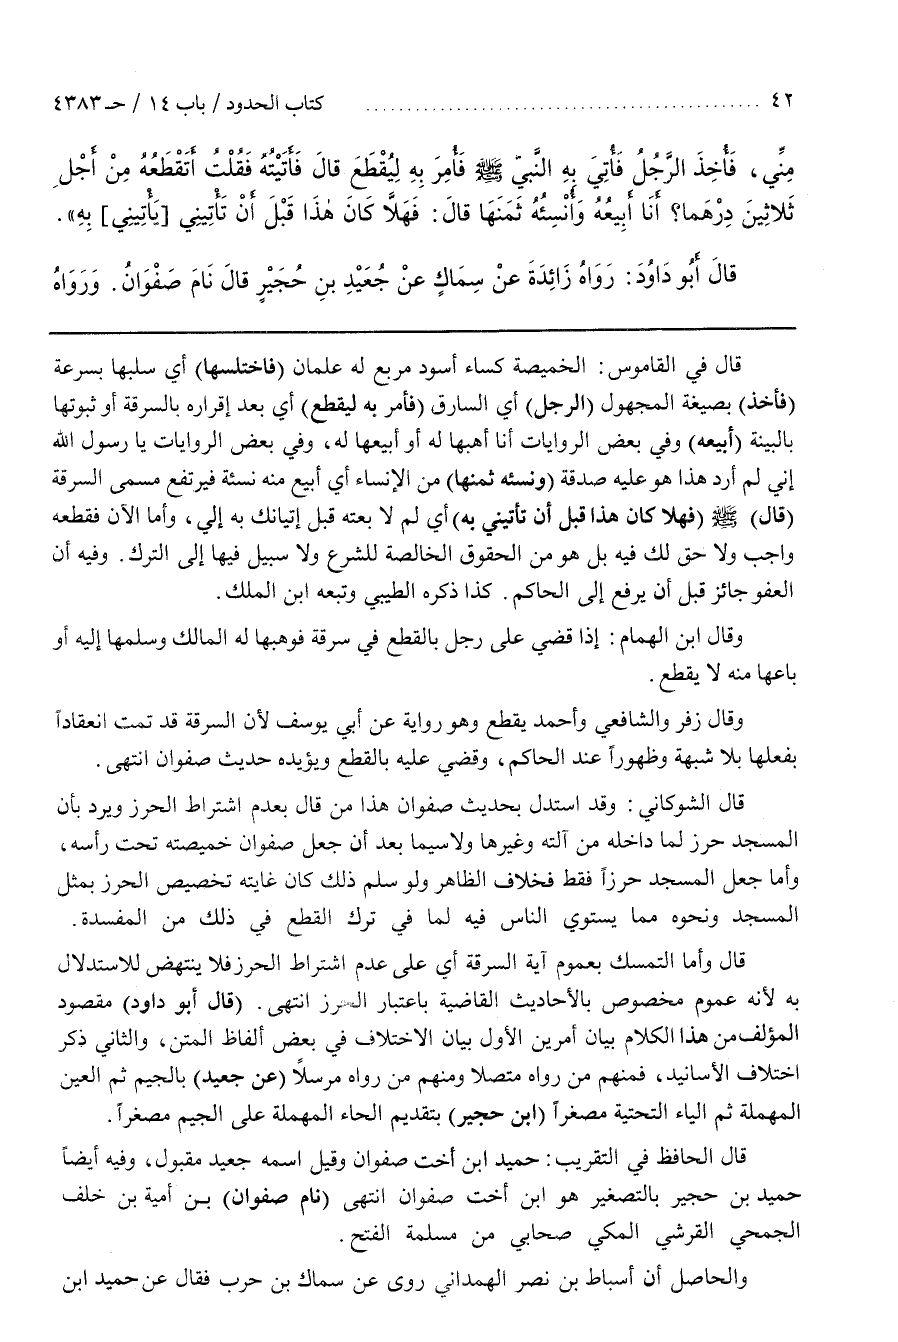 ٤٢ .................................................. كتاب الحدود / باب ١٤ / حـ ٤٣٨٣
مِنِّي، فَأُخِذَ الرَّجُلُ فَأُتِيَ بِهِ النَّبيّ ﷺ فَأُمِرَ بِهِ لِيُقْطَعَ قالَ فَأَتَيْتُهُ فَقُلْتُ أَتَقْطَعُهُ مِنْ أَجْلِ
ثَلاثِينَ دِرْهَما؟ أَنَا أَبيعُهُ وَأُنْسِئُهُ ثَمَنَهَا قالَ: فَهَلَّا كَانَ هٰذَا قَبْلَ أَنْ تَأْتِيني [يَأْتِيني] بِهِ».
قالَ أَبُو دَاوُدَ: رَوَاهُ زَائِدَةَ عنْ سِمَاكٍ عنْ جُعَيْدِ بنِ حُجَيْرٍ قالَ نَامَ صَفْوَانُ. وَرَوَاهُ
قال في القاموس: الخميصة كساء أسود مربع له علمان (فاختلسها) أي سلبها بسرعة
(فأخذ) بصيغة المجهول (الرجل) أي السارق (فأمر به ليقطع) أي بعد إقراره بالسرقة أو ثبوتها
بالبينة (أبيعه) وفي بعض الروايات أنا أهبها له أو أبيعها له، وفي بعض الروايات يا رسول الله
إني لم أرد هذا هو عليه صدقة (ونسئه ثمنها) من الإنساء أي أبيع منه نسئة فيرتفع مسمى السرقة
(قال) ﷺ (فهلا كان هذا قبل أن تأتيني به) أي لم لا بعته قبل إتيانك به إلي، وأما الآن فقطعه
واجب ولا حق لك فيه بل هو من الحقوق الخالصة للشرع ولا سبيل فيها إلى الترك. وفيه أن
العفو جائز قبل أن يرفع إلى الحاكم. كذا ذكره الطيبي وتبعه ابن الملك.
وقال ابن الهمام: إذا قضي على رجل بالقطع في سرقة فوهبها له المالك وسلمها إليه أو
باعها منه لا يقطع.
وقال زفر والشافعي وأحمد يقطع وهو رواية عن أبي يوسف لأن السرقة قد تمت انعقاداً
بفعلها بلا شبهة وظهوراً عند الحاكم، وقضي عليه بالقطع ويؤيده حديث صفوان انتهى.
قال الشوكاني: وقد استدل بحديث صفوان هذا من قال بعدم اشتراط الحرز ويرد بأن
المسجد حرز لما داخله من آلته وغيرها ولاسيما بعد أن جعل صفوان خميصته تحت رأسه،
وأما جعل المسجد حرزاً فقط فخلاف الظاهر ولو سلم ذلك كان غايته تخصيص الحرز بمثل
المسجد ونحوه مما يستوي الناس فيه لما في ترك القطع في ذلك من المفسدة.
قال وأما التمسك بعموم آية السرقة أي على عدم اشتراط الحرز فلا ينتهض للاستدلال
به لأنه عموم مخصوص بالأحاديث القاضية باعتبار الحرز انتهى. (قال أبو داود) مقصود
المؤلف من هذا الكلام بيان أمرين الأول بيان الاختلاف في بعض ألفاظ المتن، والثاني ذكر
اختلاف الأسانيد، فمنهم من رواه متصلا ومنهم من رواه مرسلًا (عن جعيد) بالجيم ثم العين
المهملة ثم الياء التحتية مصغراً (ابن حجير) بتقديم الحاء المهملة على الجيم مصغراً.
قال الحافظ في التقريب: حميد ابن أخت صفوان وقيل اسمه جعيد مقبول، وفيه أيضاً
حميد بن حجير بالتصغير هو ابن أخت صفوان انتهى (نام صفوان) بن أمية بن خلف
الجمحي القرشي المكي صحابي من مسلمة الفتح.
والحاصل أن أسباط بن نصر الهمداني روى عن سماك بن حرب فقال عن حميد ابن